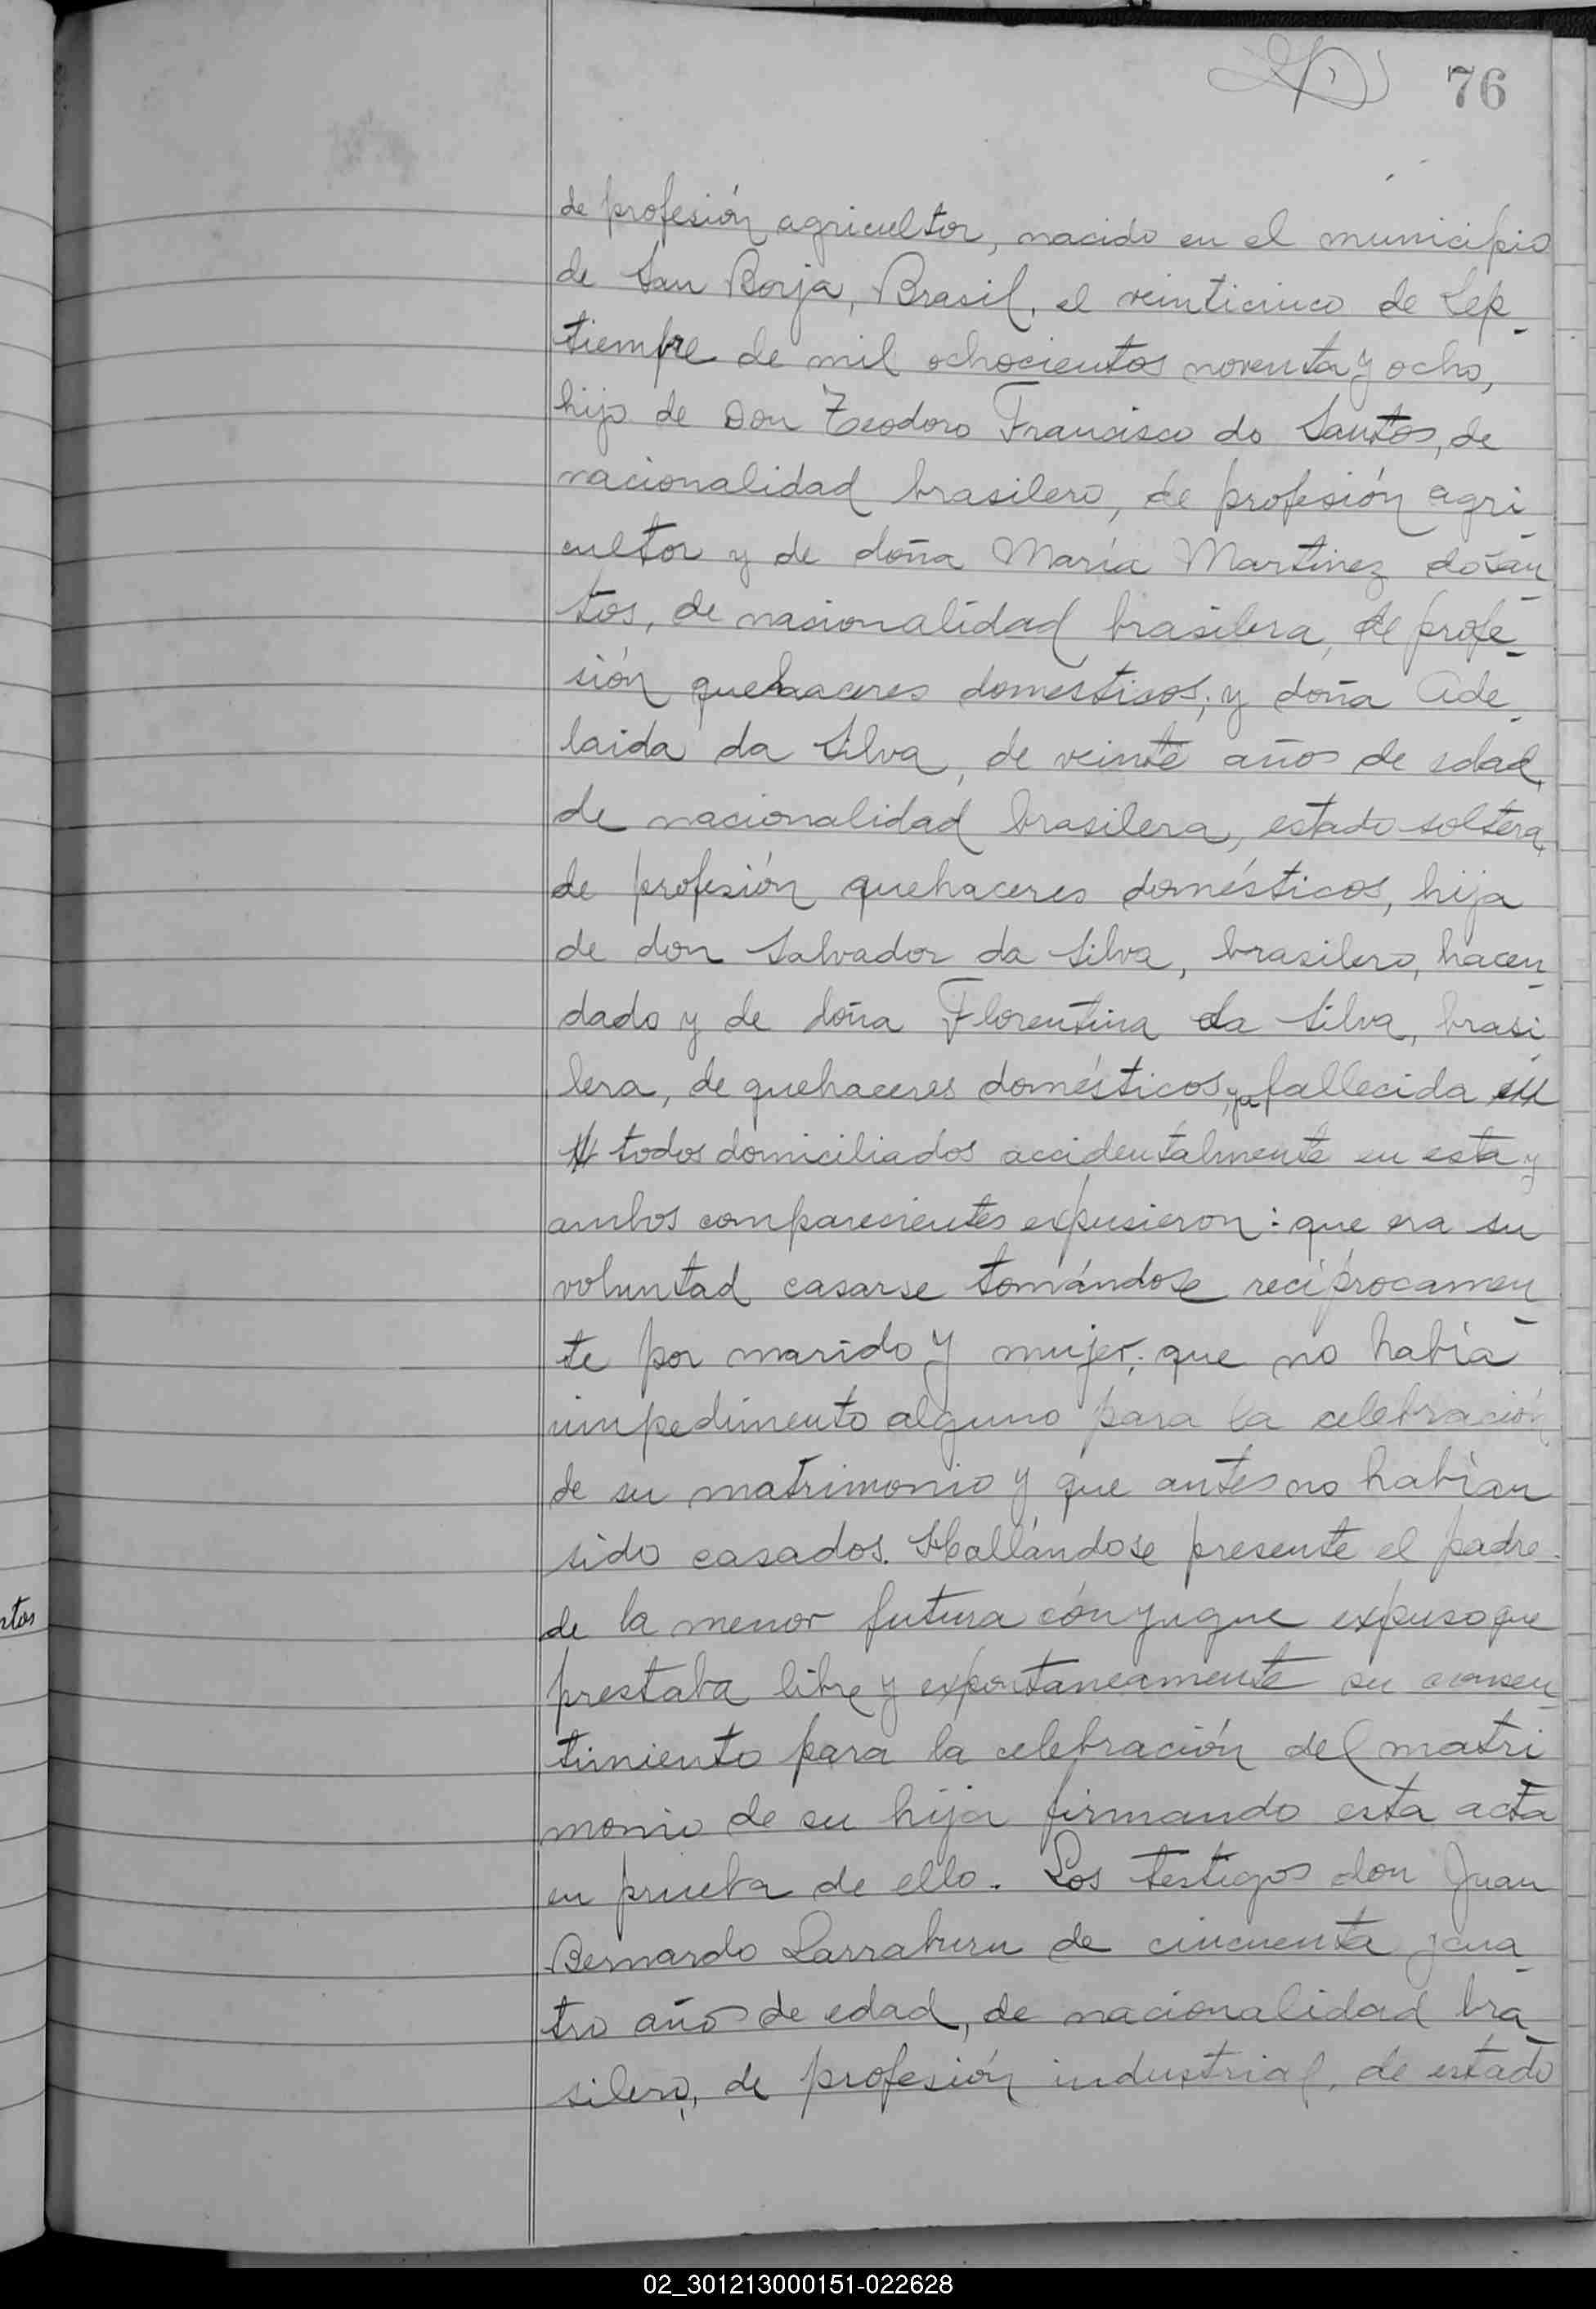 76
de profesión agricultor, nacido en el municipio
de San Borja, Brasil, el veinticinco de Sep-
tiempre de mil ochocientos noventa y ocho,
hijo de Don Teodoro Francisco do Santos, de
nacionalidad brasilero, de profesión agri-
cultor y de doña María Martinez do San-
tos, de nacionalidad brasilera, de profe-
sión quehaaceres domesticos; y doña Ade-
laida da Silva, de veinte años de edad,
de nacionalidad brasilera, estado soltera,
de profesión quehaceres domésticos, hija
de don Salvador da Silva, brasilero, hacen-
dado y de doña Florentina da Silva, brasi-
lera, de quehaceres domésticos, ya fallecida
todos domiciliados accidentalmente en esta y
ambos comparecientes expusieron: que era su
voluntad casarse tomándose recíprocamen-
te por marido y mujer; que no había
impedimento alguno para la celebración
de su matrimonio y que antes no habían
sido casados. Hallándose presente el padre
ntos
de la menor futura cónyugue expuso que
prestaba libre y expontaneamente su consen-
timiento para la celebración del matri-
monio de su hija firmando esta acta
en prueba de ello. Los testigos don Juan
Bernardo Larraburu de cincuenta y cua-
tro años de edad, de nacionalidad bra-
silero, de profesión industrial, de estado
02_301213000151-022628